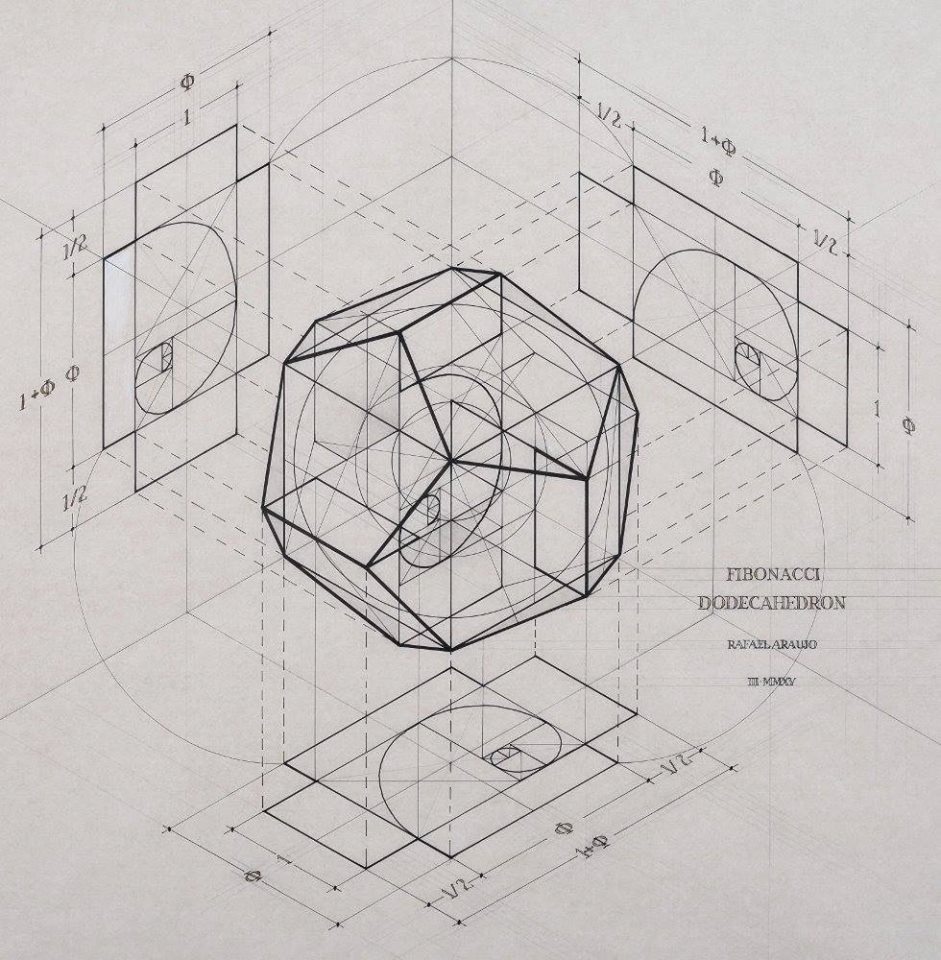 Φ
1
1/2
1+Φ
Φ
1/2
1/2
1+Φ
Φ
1/2
1
Φ
FIBONACCI
DODECAHEDRON
RAFAEL ARAUJO
III·MMXV
1/2
Φ
1+Φ
1
Φ
1/2